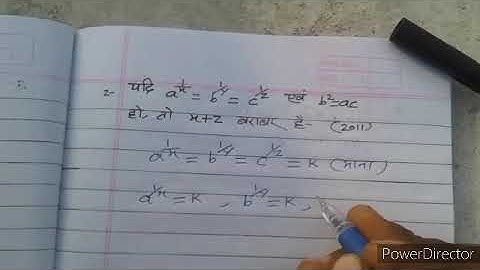 2- यदि a^1/x = b^1/y = c^1/z एवं b²=ac
हो, तो x+z बराबर है- (2011)
a^1/x = b^1/y = c^1/z = K (माना)
a^1/x = K , b^1/y = K ,
PowerDirector